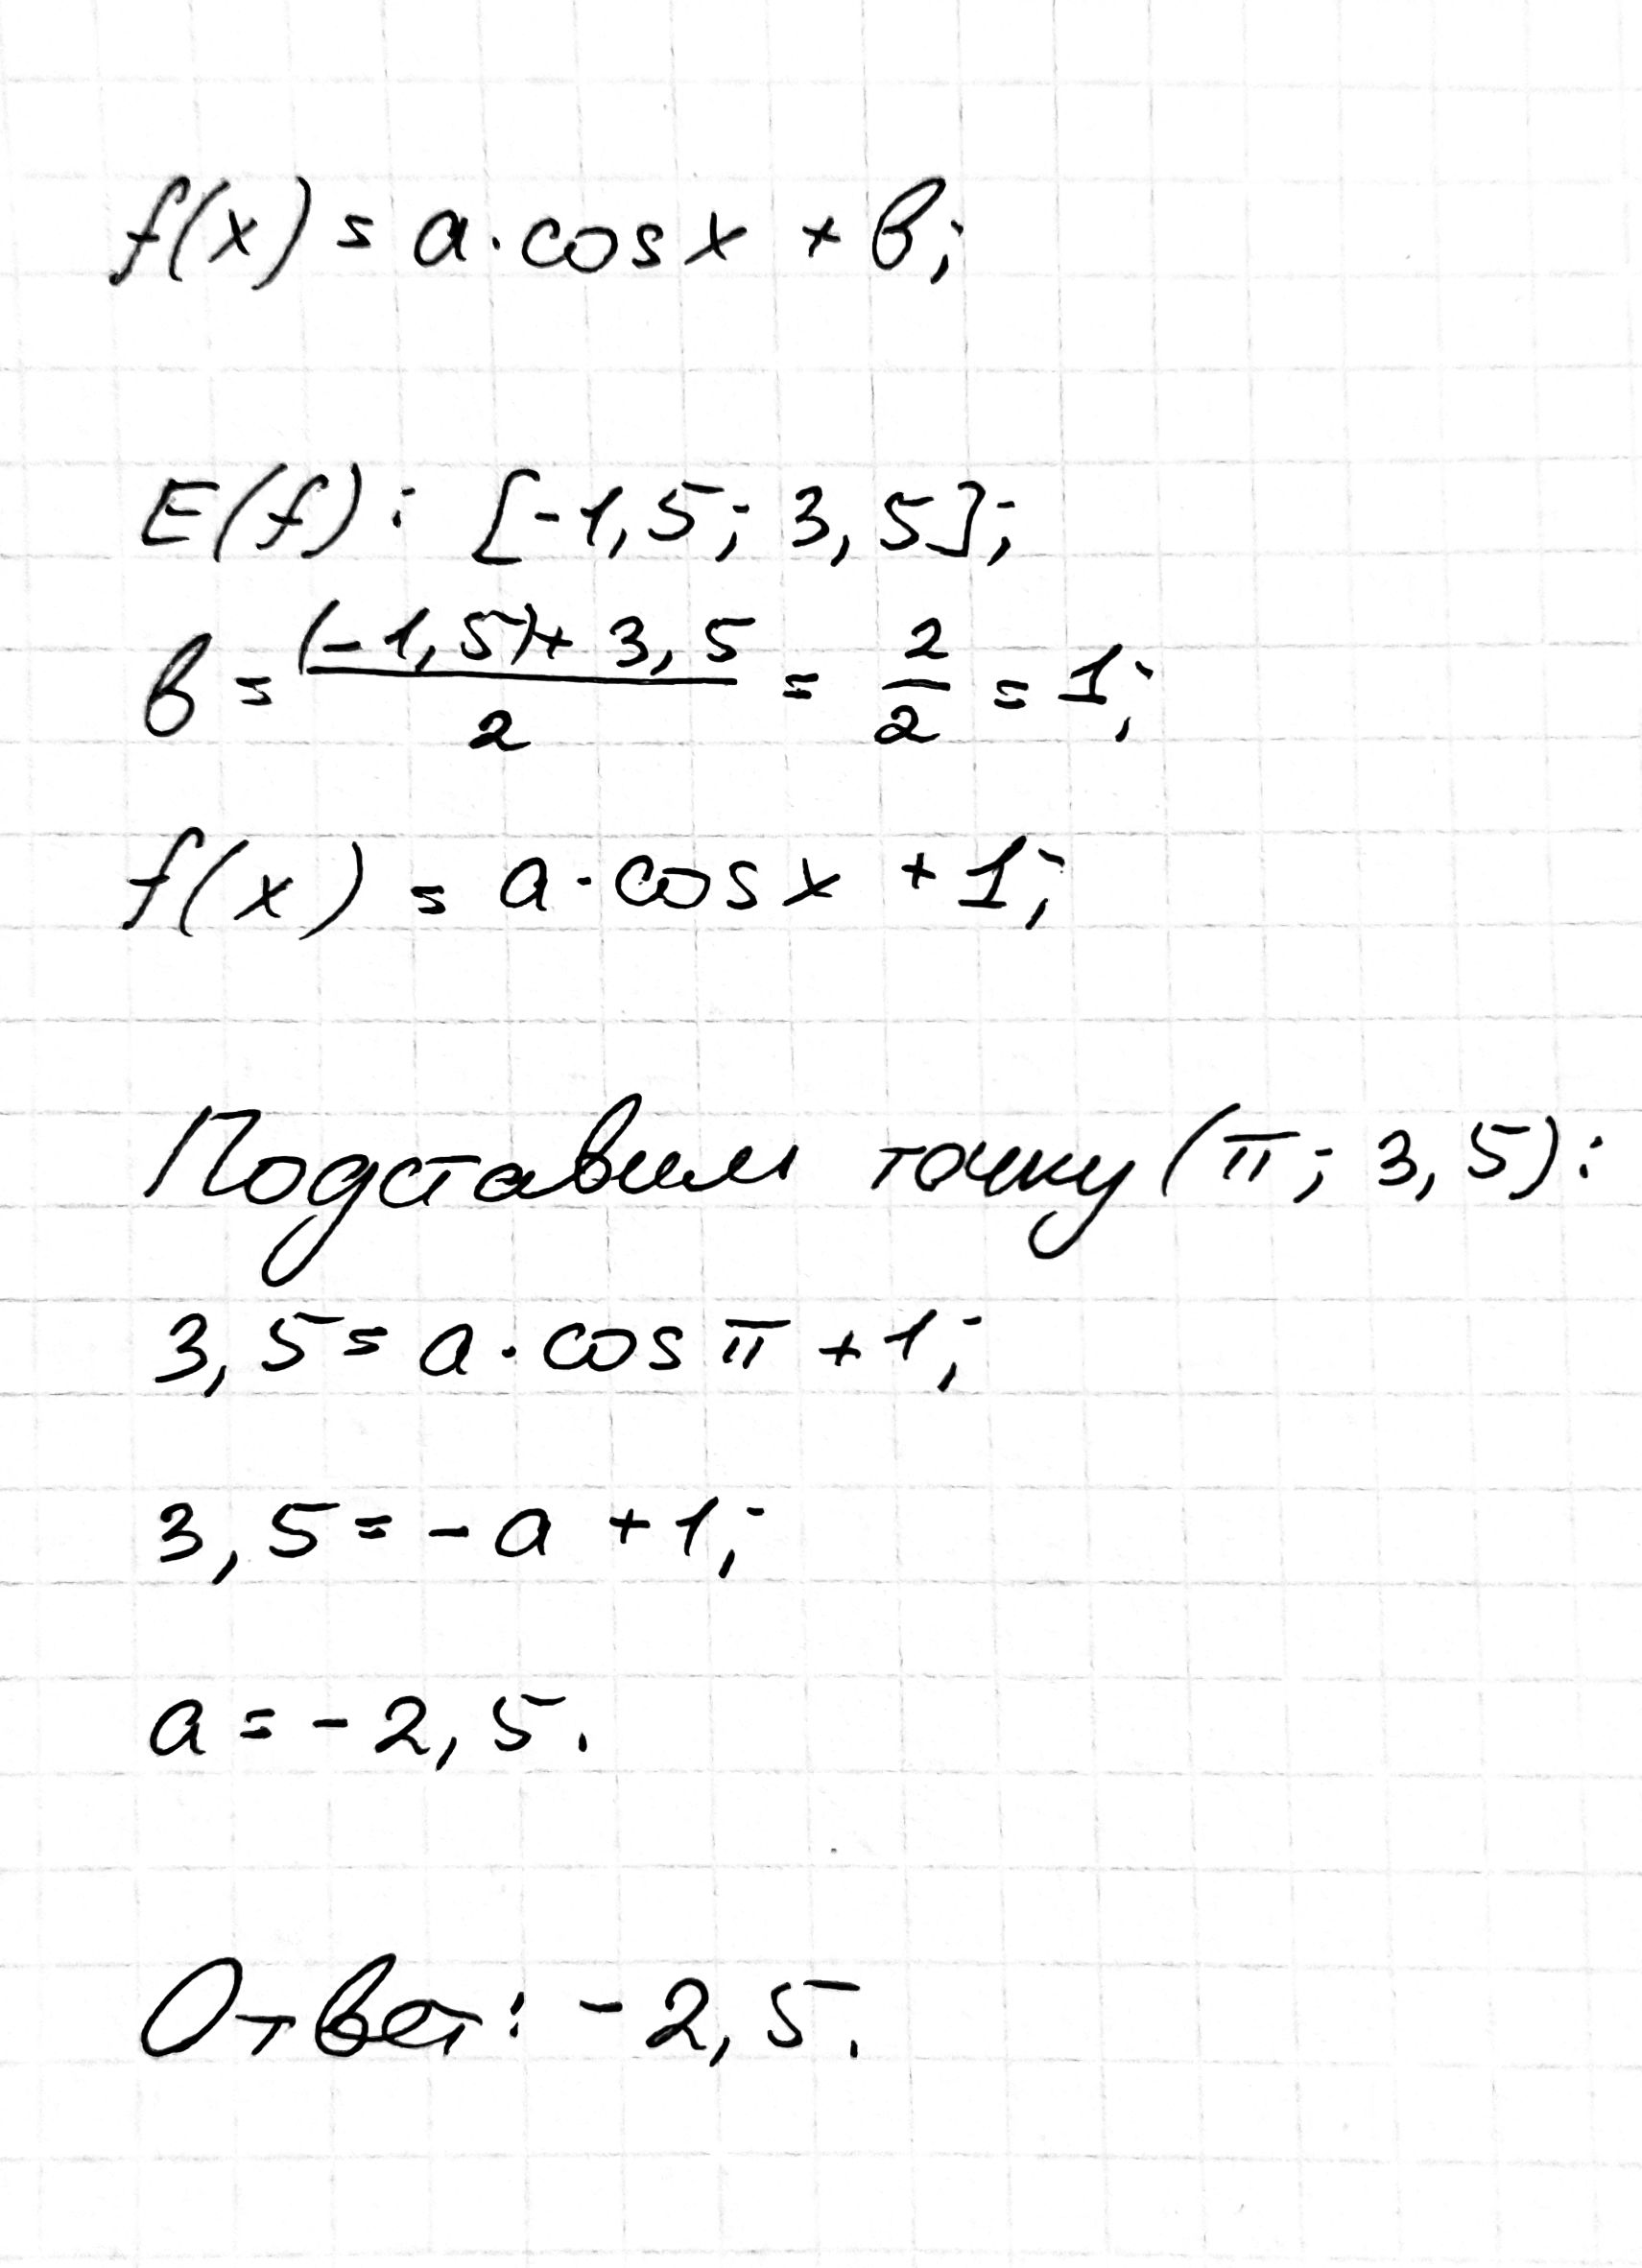 f(x) = a · cos x + b;
E(f): [-1,5; 3,5];
b = ((-1,5) + 3,5)/2 = 2/2 = 1;
f(x) = a · cos x + 1;
Подставим точку (π; 3,5):
3,5 = a · cos π + 1;
3,5 = -a + 1;
a = -2,5.
Ответ: -2,5.